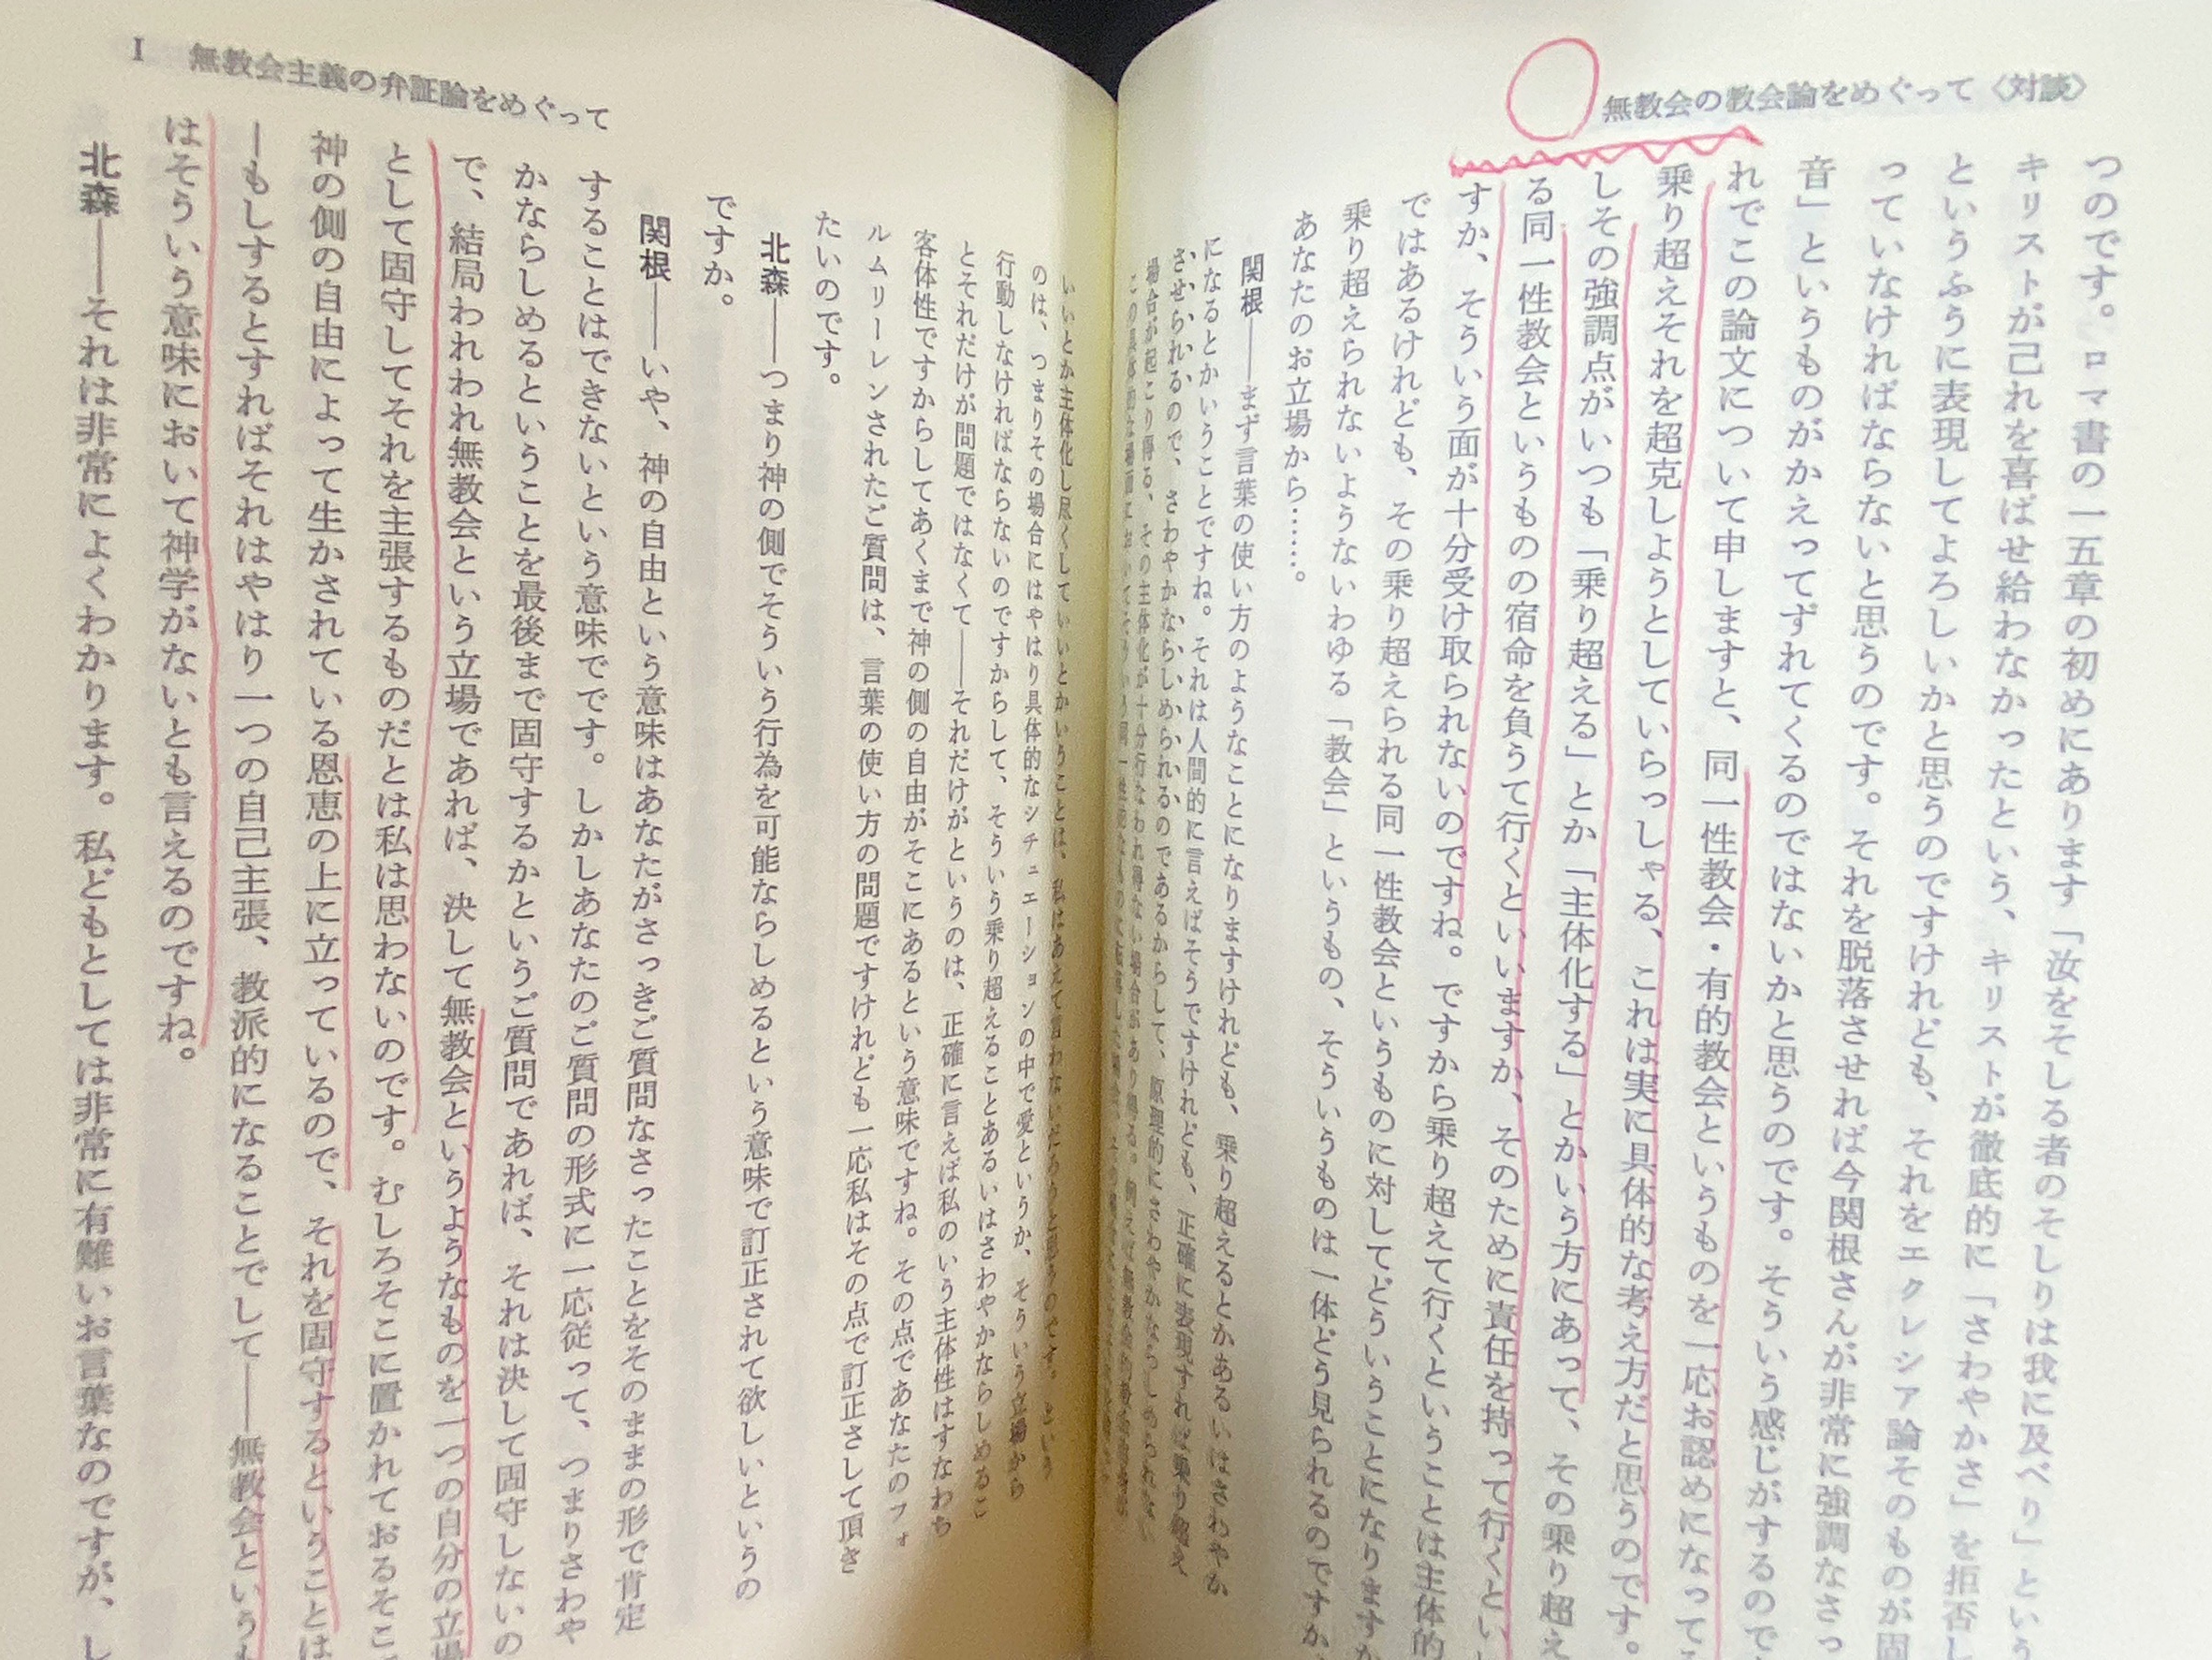 無教会の教会論をめぐって〈対談〉
つのです。ロマ書の一五章の初めにあります「汝をそしる者のそしりは我に及べり」という
キリストが己れを喜ばせ給わなかったという、キリストが徹底的に「さわやかさ」を拒否し
というふうに表現してよろしいかと思うのですけれども、それをエクレシア論そのものが固
っていなければならないと思うのです。それを脱落させれば今関根さんが非常に強調なさっ
音」というものがかえってずれてくるのではないかと思うのです。そういう感じがするので
れでこの論文について申しますと、同一性教会・有的教会というものを一応お認めになって
乗り超えそれを超克しようとしていらっしゃる、これは実に具体的な考え方だと思うのです。
しその強調点がいつも「乗り超える」とか「主体化する」とかいう方にあって、その乗り超え
る同一性教会というものの宿命を負うて行くといいますか、そのために責任を持って行くとい
すか、そういう面が十分受け取られないのですね。ですから乗り超えて行くということは主体的
ではあるけれども、その乗り超えられる同一性教会というものに対してどういうことになりますか
乗り超えられないようないわゆる「教会」というもの、そういうものは一体どう見られるのですか
あなたのお立場から……。
関根――まず言葉の使い方のようなことになりますけれども、乗り超えるとかあるいはさわやか
になるとかいうことですね。それは人間的に言えばそうですけれども、正確に表現すれば乗り超え
させられるので、さわやかならしめられるのであるからして、原理的にさわやかならしめられない
場合が起こり得る、その主体化が十分行なわれ得ない場合があり得る。
I 無教会主義の弁証論をめぐって
いいとか主体化し尽くしていいとかいうことは、私はあえて言わないだろうと思うのです。
のは、つまりその場合にはやはり具体的なシチュエーションの中で愛というか、そういう立場から
行動しなければならないのですからして、そういう乗り超えることあるいはさわやかならしめるこ
とそれだけが問題ではなくて――それだけがというのは、正確に言えば私のいう主体性はすなわち
客体性ですからしてあくまで神の側の自由がそこにあるという意味ですね。その点であなたのフォ
ルムリーレンされたご質問は、言葉の使い方の問題ですけれども一応私はその点で訂正さして頂き
たいのです。
北森――つまり神の側でそういう行為を可能ならしめるという意味で訂正されて欲しいというの
ですか。
関根――いや、神の自由という意味はあなたがさっきご質問なさったことをそのままの形で肯定
することはできないという意味でです。しかしあなたのご質問の形式に一応従って、つまりさわや
かならしめるということを最後まで固守するかというご質問であれば、それは決して固守しないの
で、結局われわれ無教会という立場であれば、決して無教会というようなものを一つの自分の立場
として固守してそれを主張するものだとは私は思わないのです。むしろそこに置かれておるそこ
神の側の自由によって生かされている恩恵の上に立っているので、それを固守するということは
ーもしするとすればそれはやはり一つの自己主張、教派的になることでして――無教会というも
はそういう意味において神学がないとも言えるのですね。
北森――それは非常によくわかります。私どもとしては非常に有難いお言葉なのですが、し